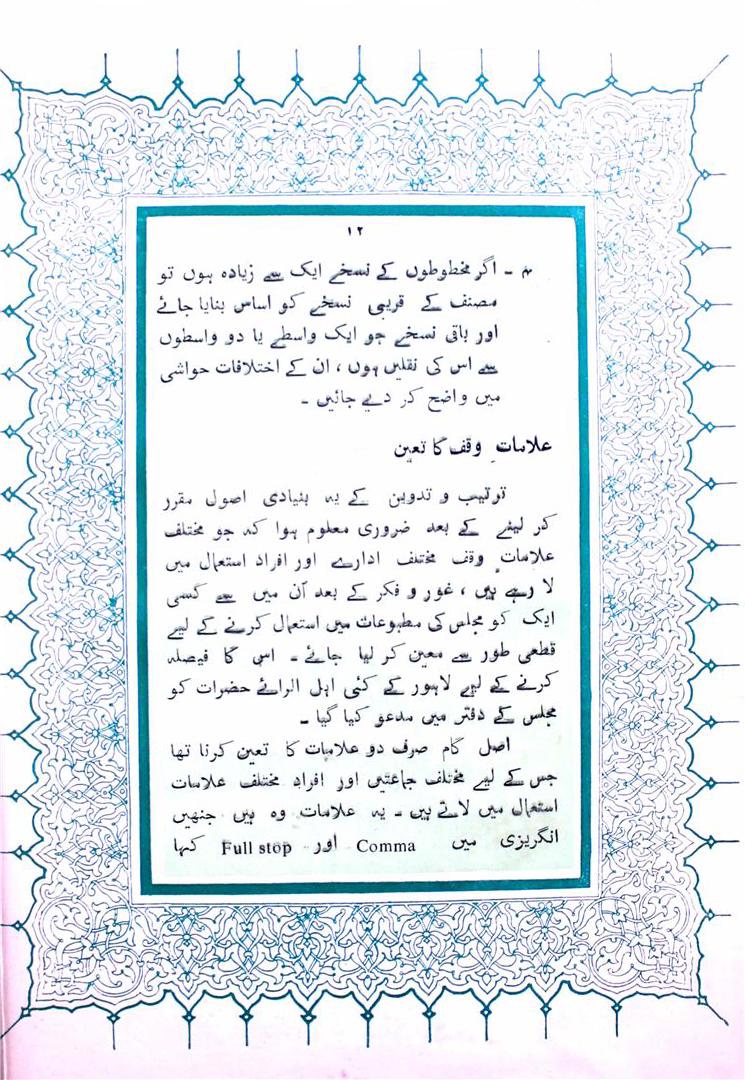 ۱۲
۴ - اگر مخطوطوں کے نسخے ایک سے زیادہ ہوں تو
مصنف کے قریبی نسخے کو اساس بنایا جائے
اور باقی نسخے جو ایک واسطے یا دو واسطوں
سے اس کی نقلیں ہوں ، ان کے اختلافات حواشی
میں واضح کر دیے جائیں -
علاماتِ وقف کا تعین
ترتیب و تدوین کے یہ بنیادی اصول مقرر
کر لینے کے بعد ضروری معلوم ہوا کہ جو مختلف
علاماتِ وقف مختلف ادارے اور افراد استعمال میں
لا رہے ہیں ، غور و فکر کے بعد اُن میں سے کسی
ایک کو مجلس کی مطبوعات میں استعمال کرنے کے لیے
قطعی طور سے معین کر لیا جائے - اس کا فیصلہ
کرنے کے لیے لاہور کے کئی اہل الرائے حضرات کو
مجلس کے دفتر میں مدعو کیا گیا -
اصل کام صرف دو علامات کا تعین کرنا تھا
جس کے لیے مختلف جماعتیں اور افراد مختلف علامات
استعمال میں لاتے ہیں - یہ علامات وہ ہیں جنھیں
انگریزی میں Comma اور Full stop کہا